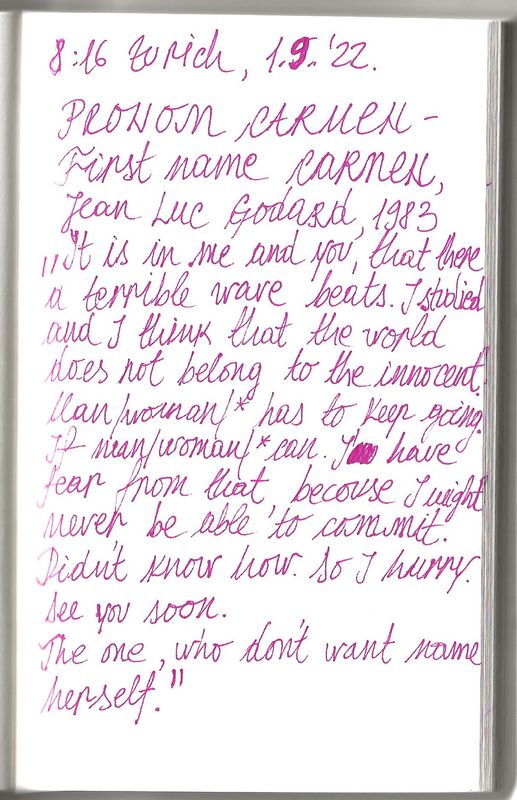 8:16 Zurich, 1.9.'22.
PRONOM CARMEN -
First name CARMEN,
Jean Luc Godard, 1983
„It is in me and you, that there
a terrible wave beats. I studied
and I think that the world
does not belong to the innocent.
Man/woman/* has to keep going.
If man/woman/* can. I have
fear from that, becouse I might
never be able to commit.
Didn't know how. So I hurry.
See you soon.
The one, who don't want name
herself."